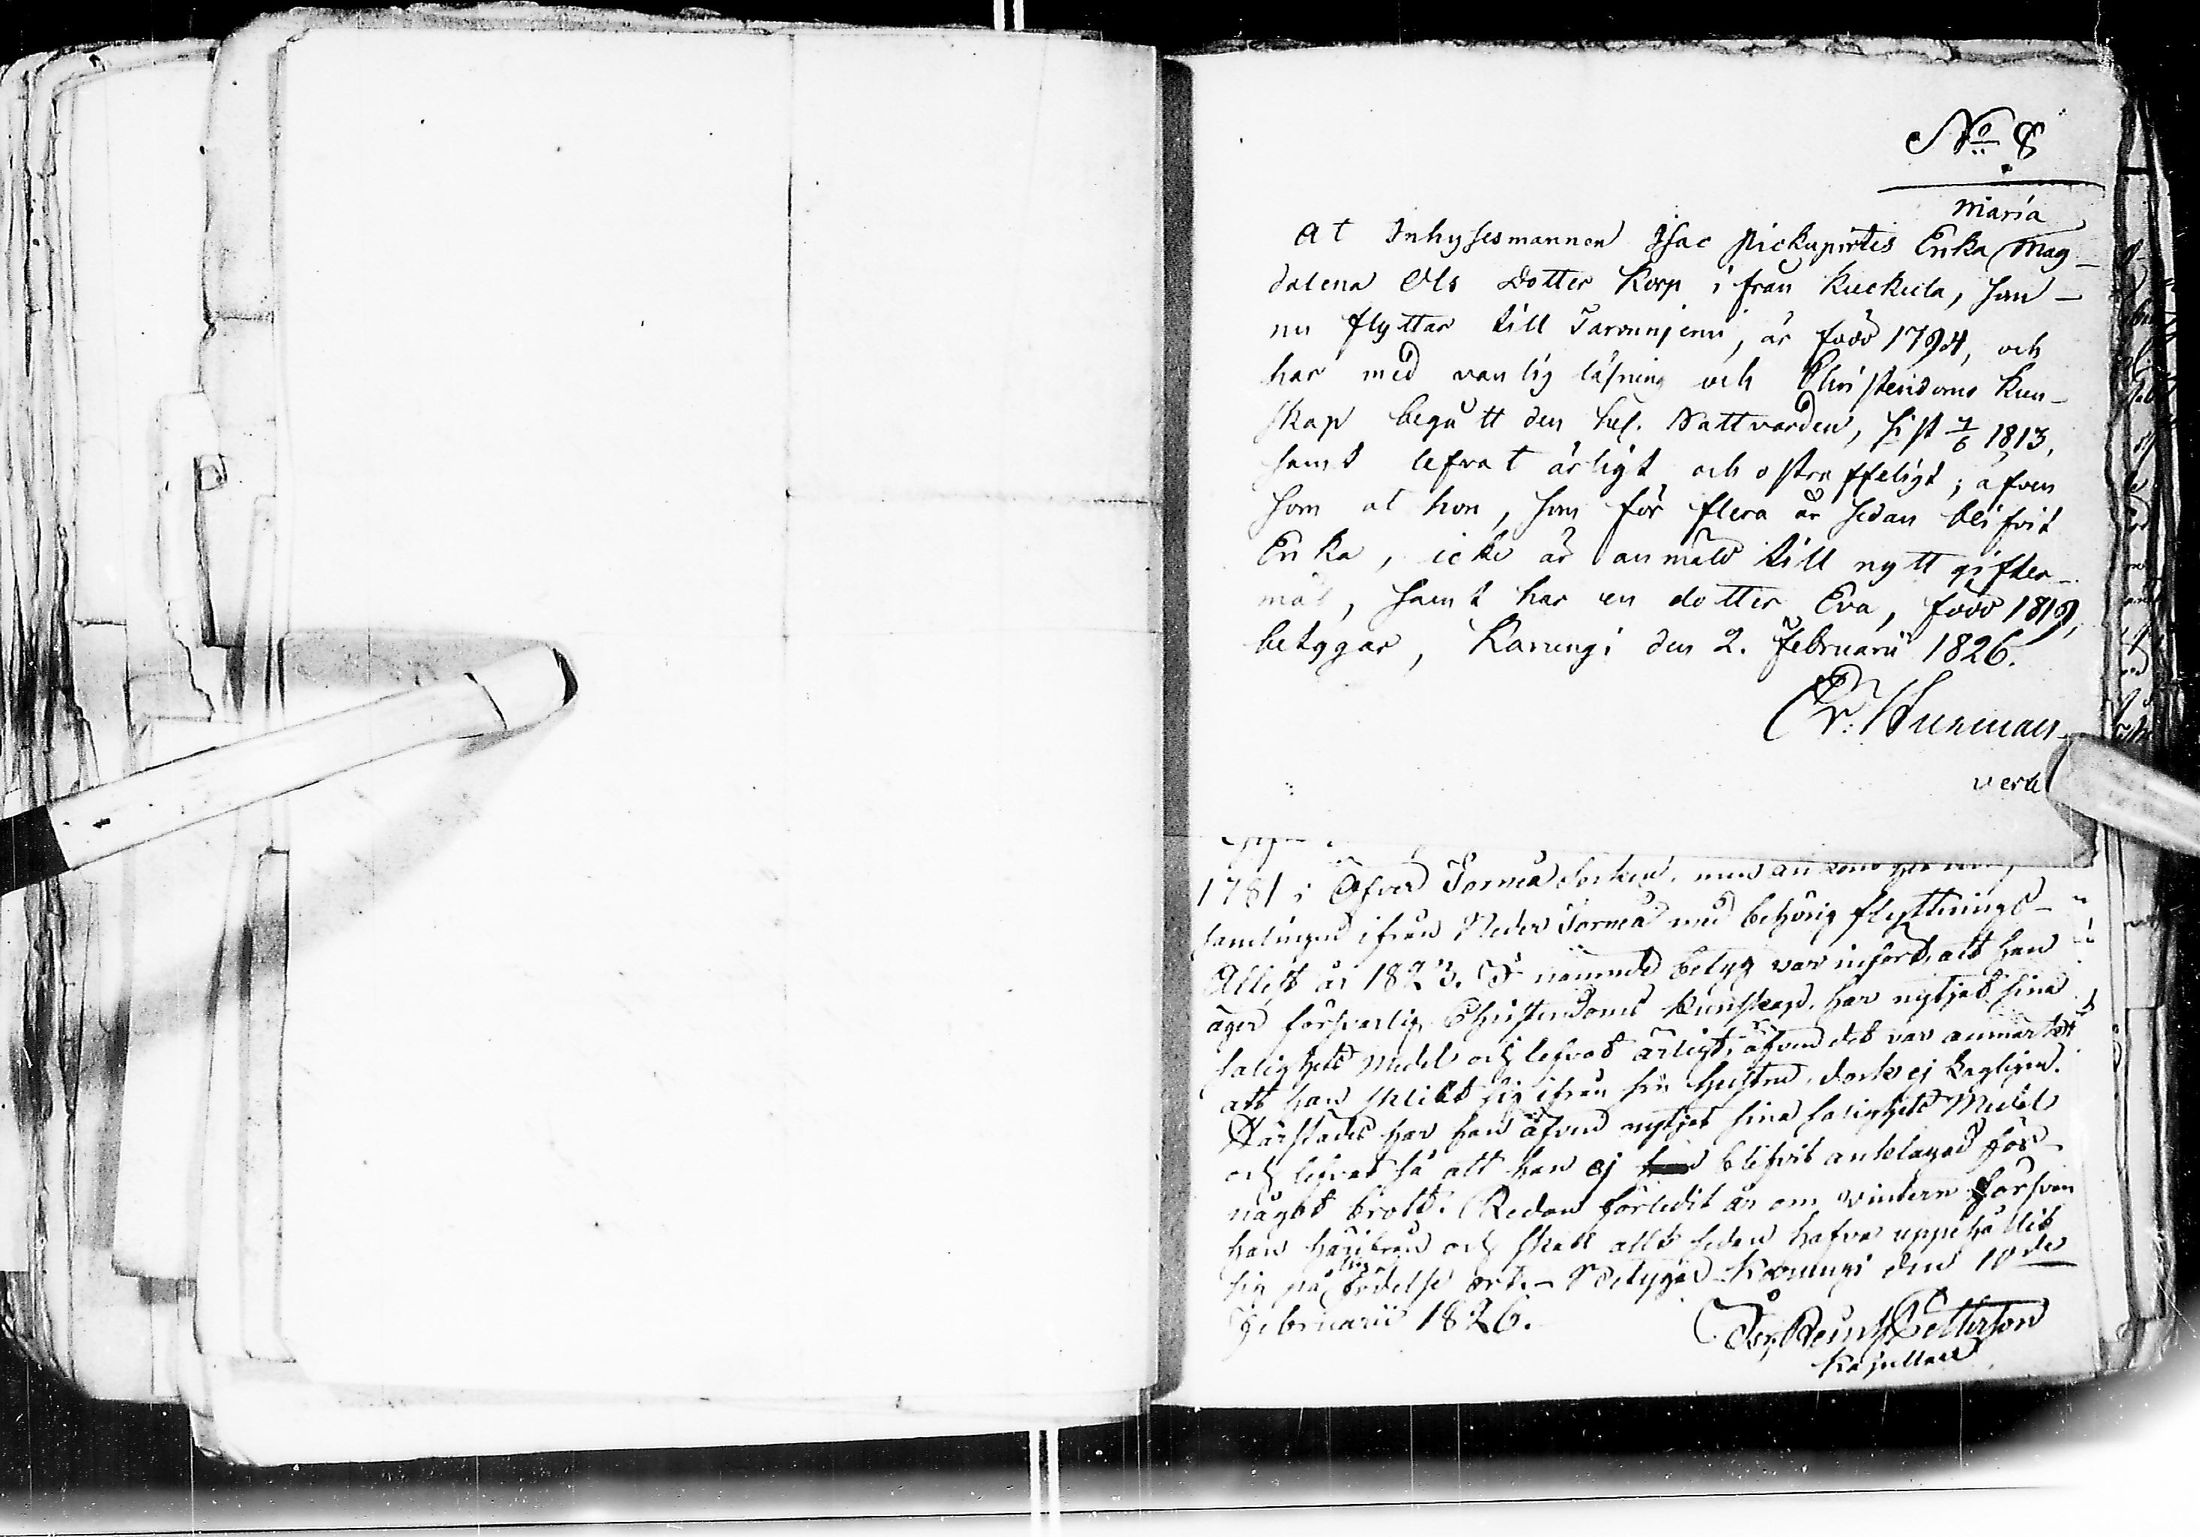 No 8
Maria
At Inhysesmannen Isac Pickupirtis Enka Mag-
dalena Ols Dotter Korp ifrån Kuckula, som
nu flyttar till Tarvunjemi, är född 1794, och
har med vanlig läsning och Christendoms Kun-
skap begått den hel. Nattvarden, sist 7/6 1813,
samt lefvat ärligt och ostraffeligt; äfven
som at hon, som för flera år sedan blifvit
Enka, icke är anmäld till nytt gifter-
mål, samt har en dotter Eva, född 1819,
betygar, Karungi den 2. Februarii 1826.
Er. Hurman
vert
1781 i Öfver Torneå Socken, men
samlingen ifrån Neder Torneå med behörig flyttnings-
Attest år 1823. I nämnde betyg var infört, att han
äger försvarlig Christendoms kunskap, har nytjat sina
salighets Medel och lefvat ärligt, äfven det var anmärkt
att han skildt sig ifrån sin hustru, dock ej lagligen.
Härstädes har han äfven nytjat sina salighets Medel
och lefvat så att han ej blifvit anklagad för
något brott. Redan förledit år om vintern försvan
han härifrån och skall allt sedan hafva uppehållit
sig på sin födelse ort. - Betygar Karungi den 10de
Februarii 1826.
Petterson